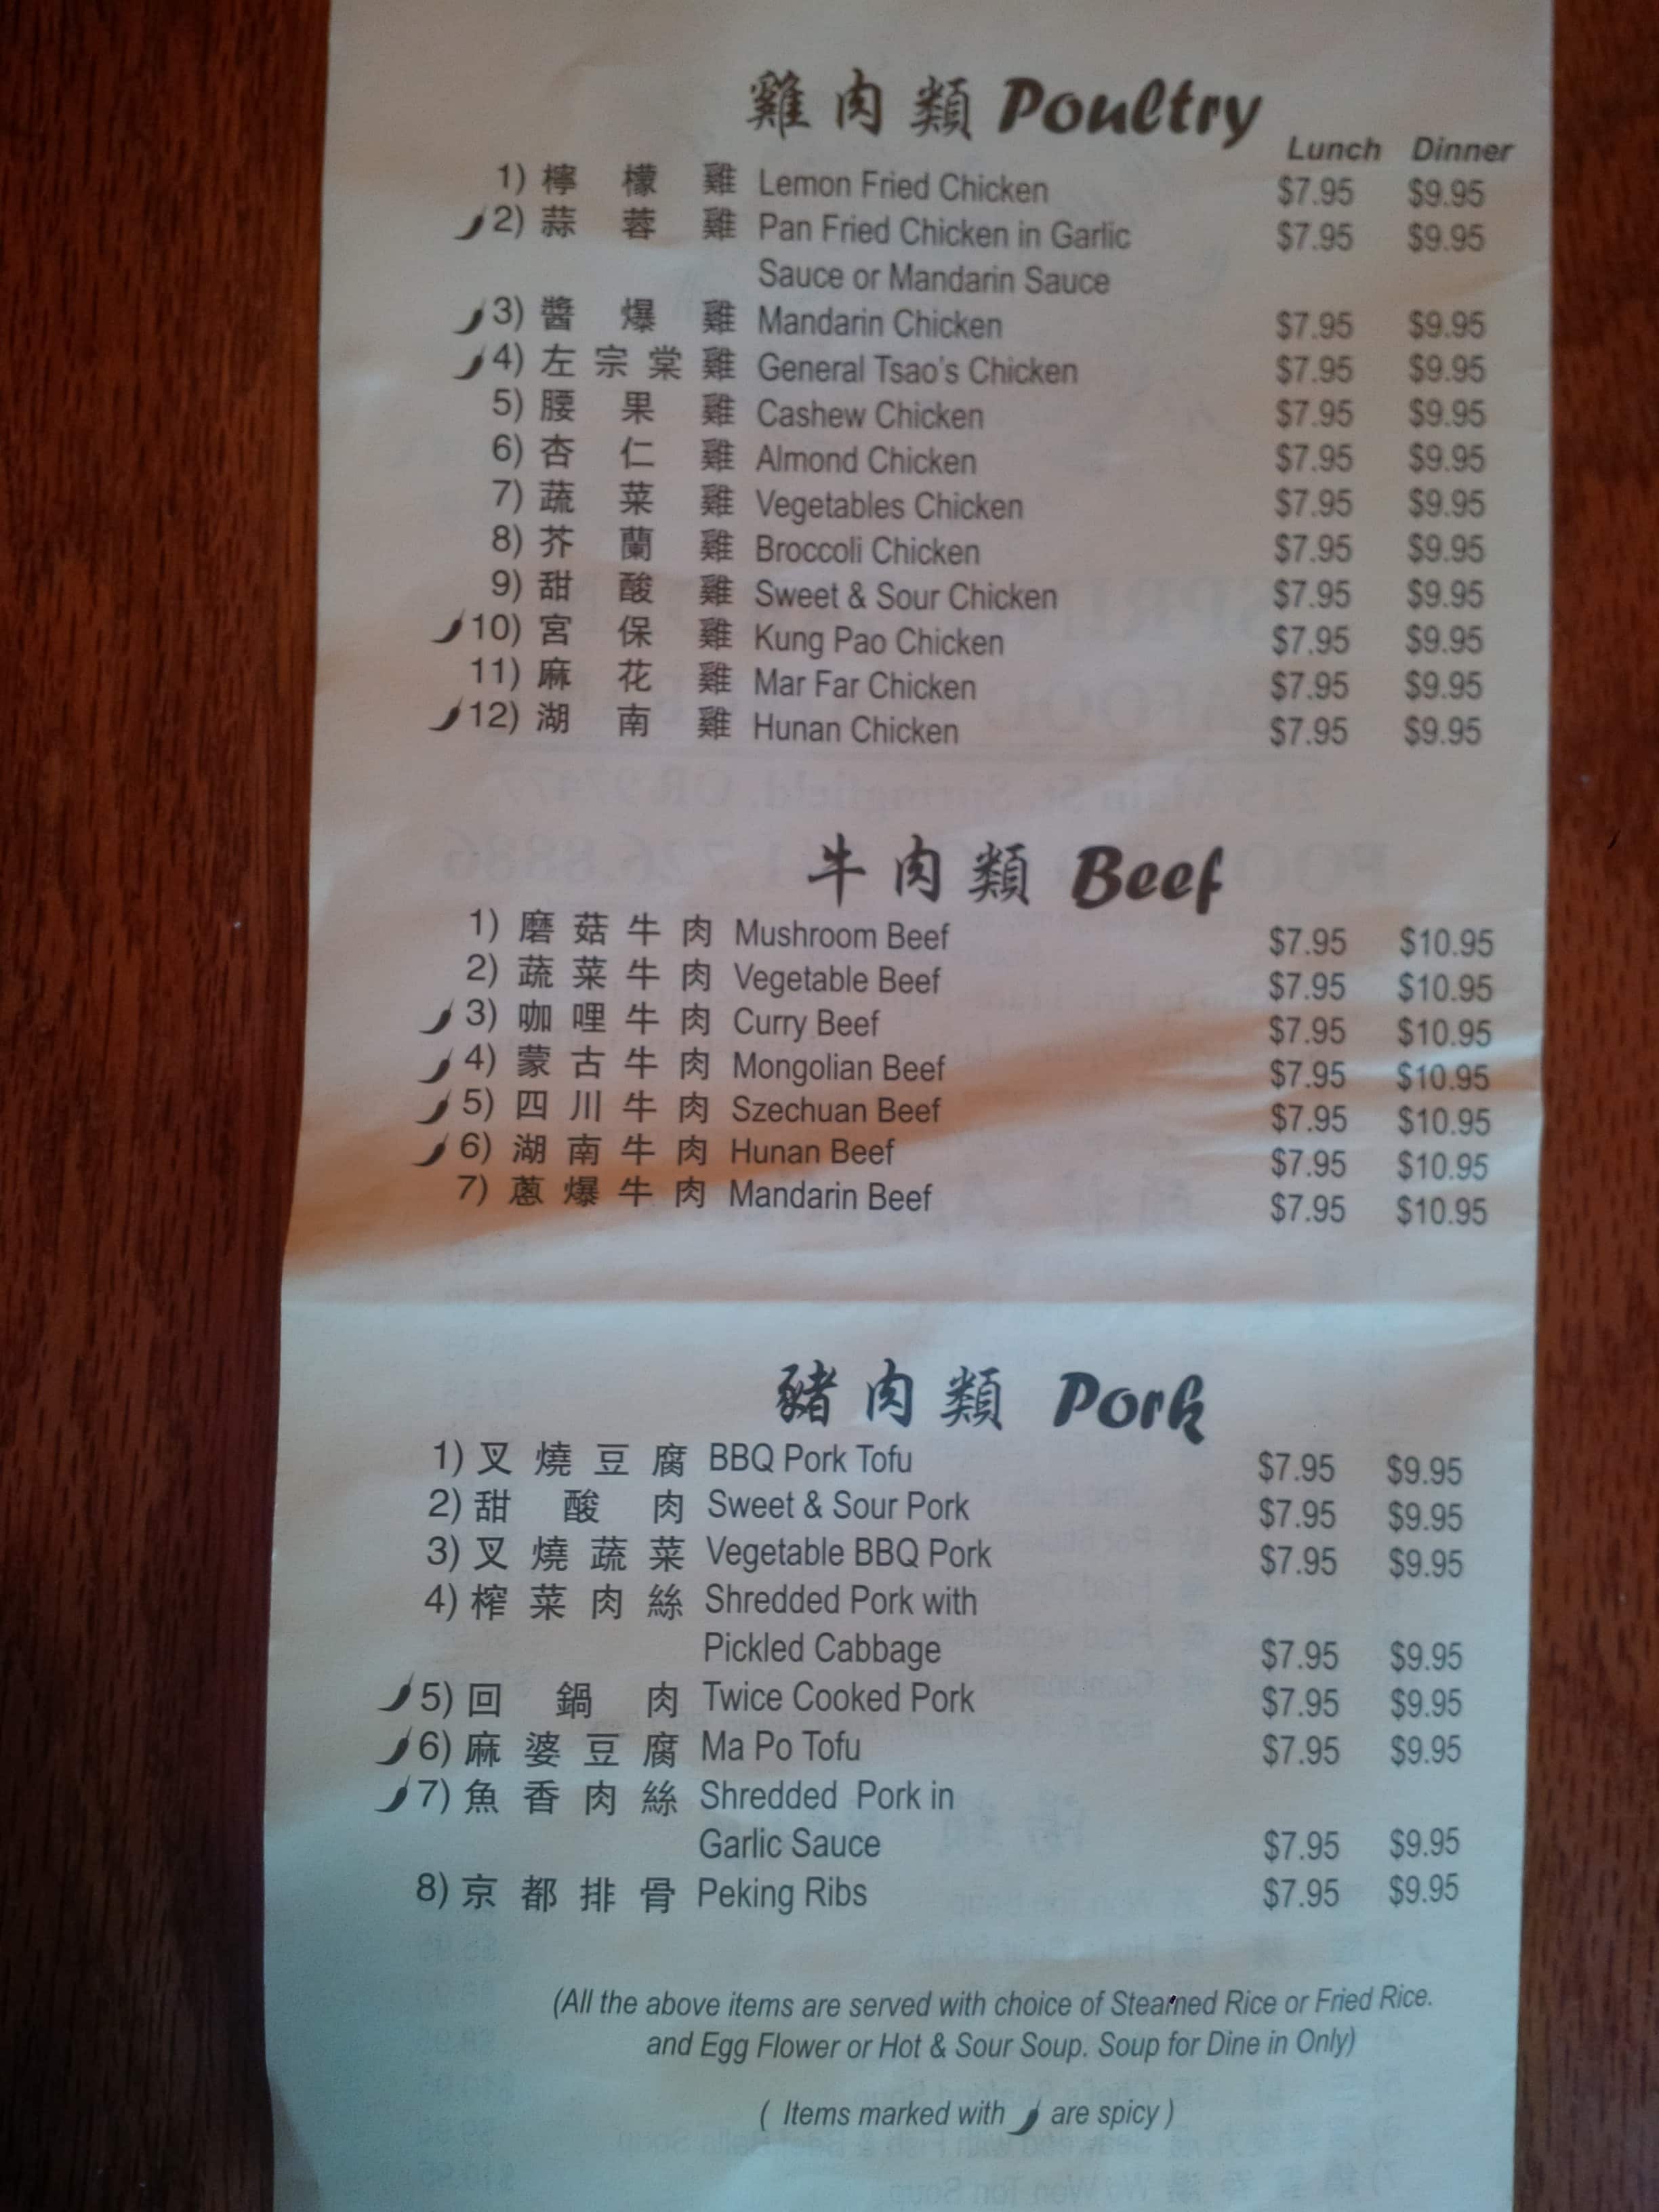 雞肉類 Poultry
Lunch Dinner
1) 檸檬雞 Lemon Fried Chicken $7.95 $9.95
2) 蒜蓉雞 Pan Fried Chicken in Garlic $7.95 $9.95
Sauce or Mandarin Sauce
3) 醬爆雞 Mandarin Chicken $7.95 $9.95
4) 左宗棠雞 General Tsao's Chicken $7.95 $9.95
5) 腰果雞 Cashew Chicken $7.95 $9.95
6) 杏仁雞 Almond Chicken $7.95 $9.95
7) 蔬菜雞 Vegetables Chicken $7.95 $9.95
8) 芥蘭雞 Broccoli Chicken $7.95 $9.95
9) 甜酸雞 Sweet & Sour Chicken $7.95 $9.95
10) 宮保雞 Kung Pao Chicken $7.95 $9.95
11) 麻花雞 Mar Far Chicken $7.95 $9.95
12) 湖南雞 Hunan Chicken $7.95 $9.95
牛肉類 Beef
1) 磨菇牛肉 Mushroom Beef $7.95 $10.95
2) 蔬菜牛肉 Vegetable Beef $7.95 $10.95
3) 咖哩牛肉 Curry Beef $7.95 $10.95
4) 蒙古牛肉 Mongolian Beef $7.95 $10.95
5) 四川牛肉 Szechuan Beef $7.95 $10.95
6) 湖南牛肉 Hunan Beef $7.95 $10.95
7) 蔥爆牛肉 Mandarin Beef $7.95 $10.95
豬肉類 Pork
1) 叉燒豆腐 BBQ Pork Tofu $7.95 $9.95
2) 甜酸肉 Sweet & Sour Pork $7.95 $9.95
3) 叉燒蔬菜 Vegetable BBQ Pork $7.95 $9.95
4) 榨菜肉絲 Shredded Pork with
Pickled Cabbage $7.95 $9.95
5) 回鍋肉 Twice Cooked Pork $7.95 $9.95
6) 麻婆豆腐 Ma Po Tofu $7.95 $9.95
7) 魚香肉絲 Shredded Pork in
Garlic Sauce $7.95 $9.95
8) 京都排骨 Peking Ribs $7.95 $9.95
(All the above items are served with choice of Steamed Rice or Fried Rice.
and Egg Flower or Hot & Sour Soup. Soup for Dine in Only)
( Items marked with are spicy )